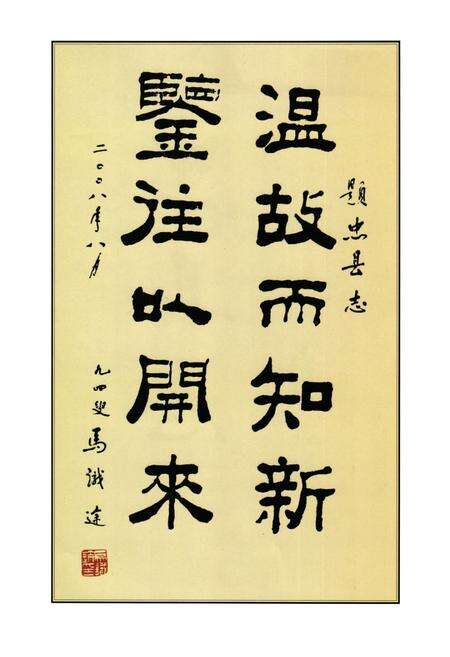 題忠县志
温故而知新
鑒往以開來
二〇〇八年八月
九四叟馬識途